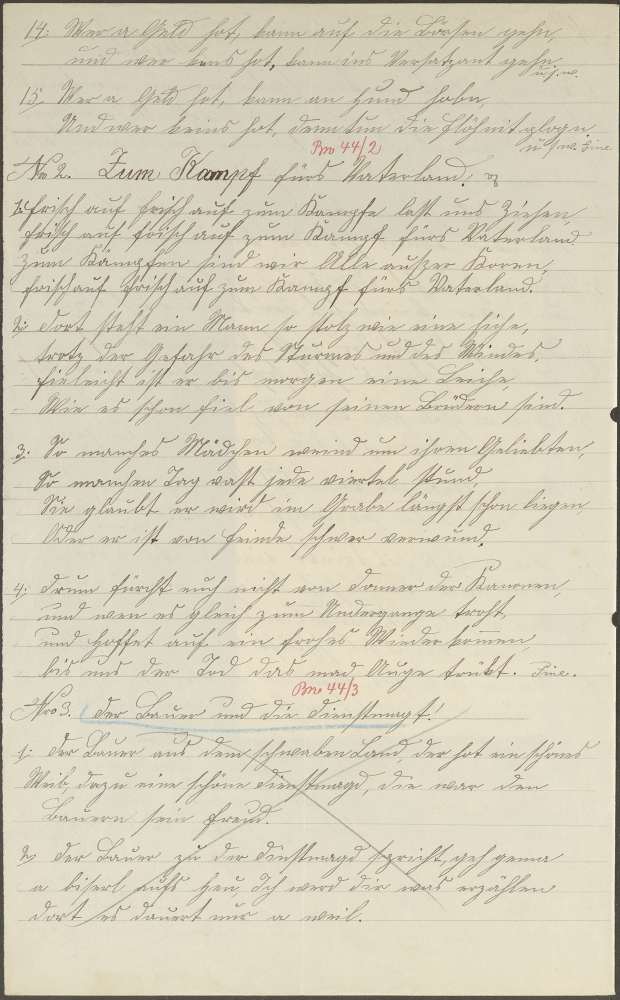 14: Wer a Geld hot, kann auf die Börsen gehn,
und wer kens hot, kann ins Versatzamt gehn
u.s.w.
15. Wer a Geld hot, kann an Hund habn,
Und wer keins hat, denn tun die Flöh nit plagn.
u.s.w. Fine
Bm 44/2
No 2. Zum Kampf fürs Vaterland.
1. Frisch auf frisch auf zum Kampfe last uns Ziehen
frisch auf frisch auf zum Kampf fürs Vaterland
Zum Kämpfen sind wir Alle
frisch auf frisch auf zum Kampf fürs Vaterland.
2: Dort steht ein Mann so stolz wie eine Eiche,
trotz der Gefahr des Sturmes und des Windes,
fieleicht ist er bis morgen eine Leiche,
Wie es schon fiel von seinen Brüdern sind.
3. So manches Mädchen weind um ihren Geliebten,
So manchen Tag vast jede viertel Stund,
Sie glaubt er wird im Grabe längst schon liegen,
Oder er ist von Feinde schwer verwund.
4: Drum fürcht euch nicht von Donner der Kanonen,
und wen es gleich zum Undergange troht,
und hoffet auf ein frohes Wiederkommen,
bis uns der Tod das mad Auge trübt. Fine.
Bm 44/3
Nro 3. Der Bauer und die Dienstmagt!
1: Der Bauer aus dem schwaben Land, der hot ein schönes
Weib, dazu eine schöne Dienstmagd, die war den
Bauern sein Freud.
2. Der Bauer zu der Dienstmagd spricht, geh
a biserl aufs Heu Ich werd dir was erzählen
dort es dauert nur a weil.